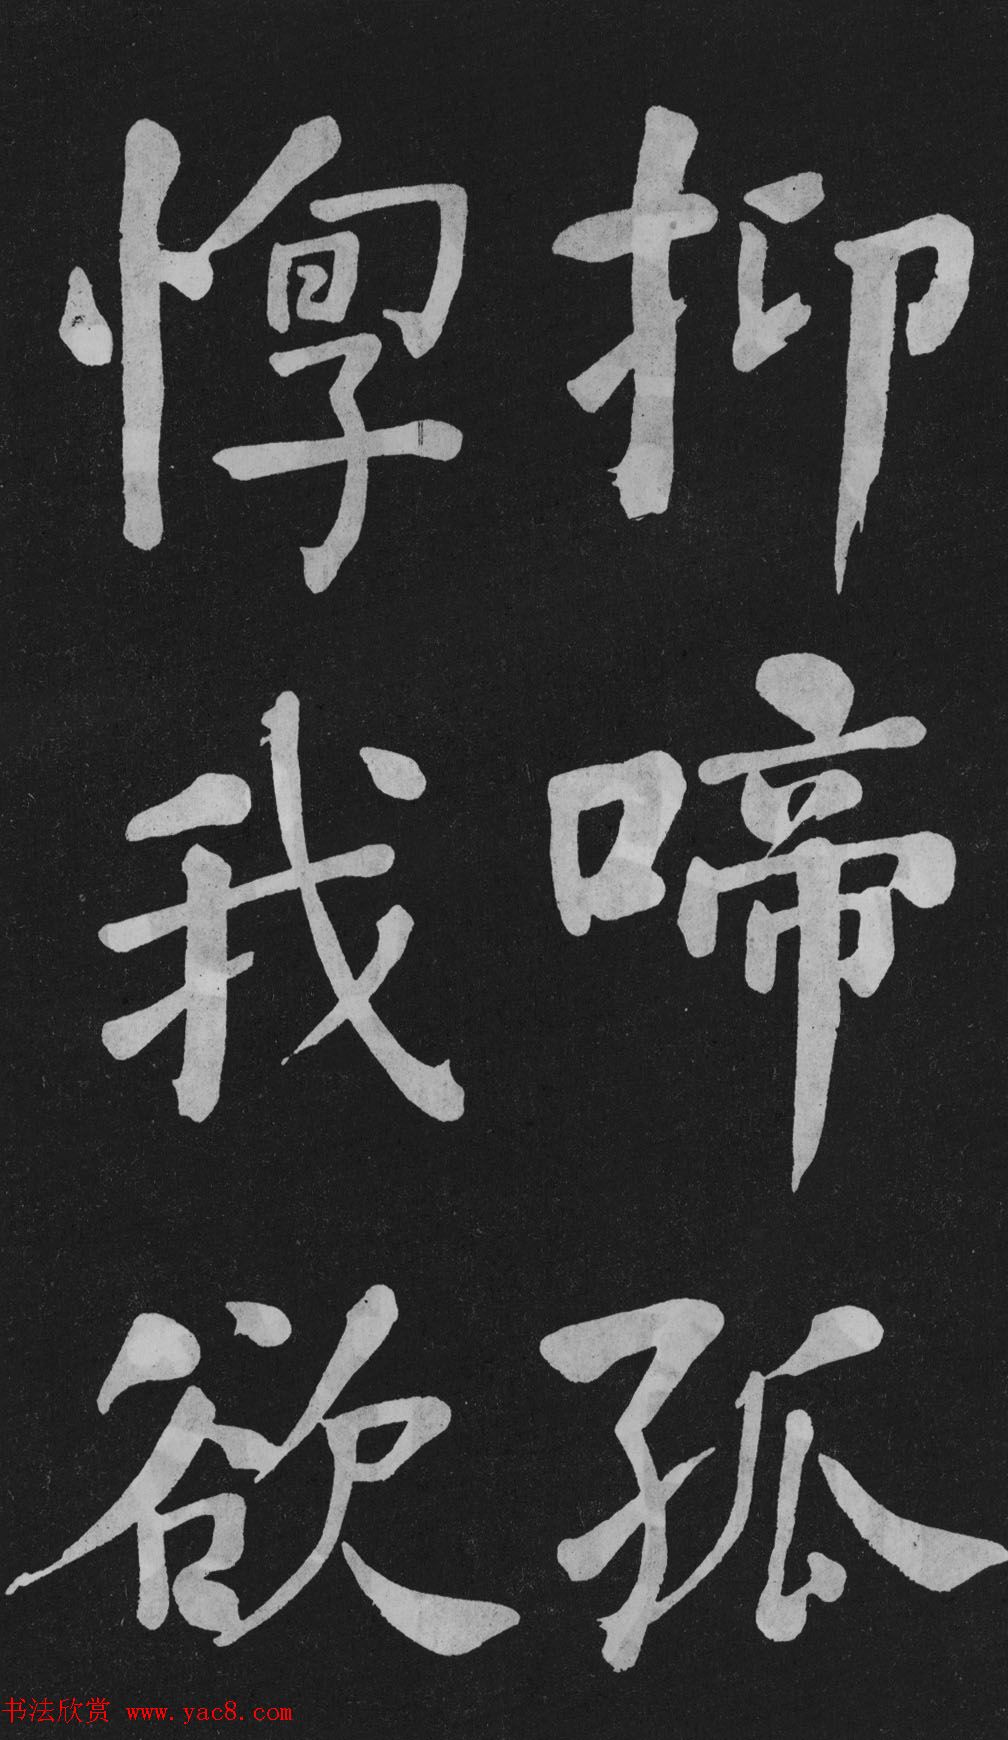 抑啼孤
惸我欲
书法欣赏 www.yac8.com